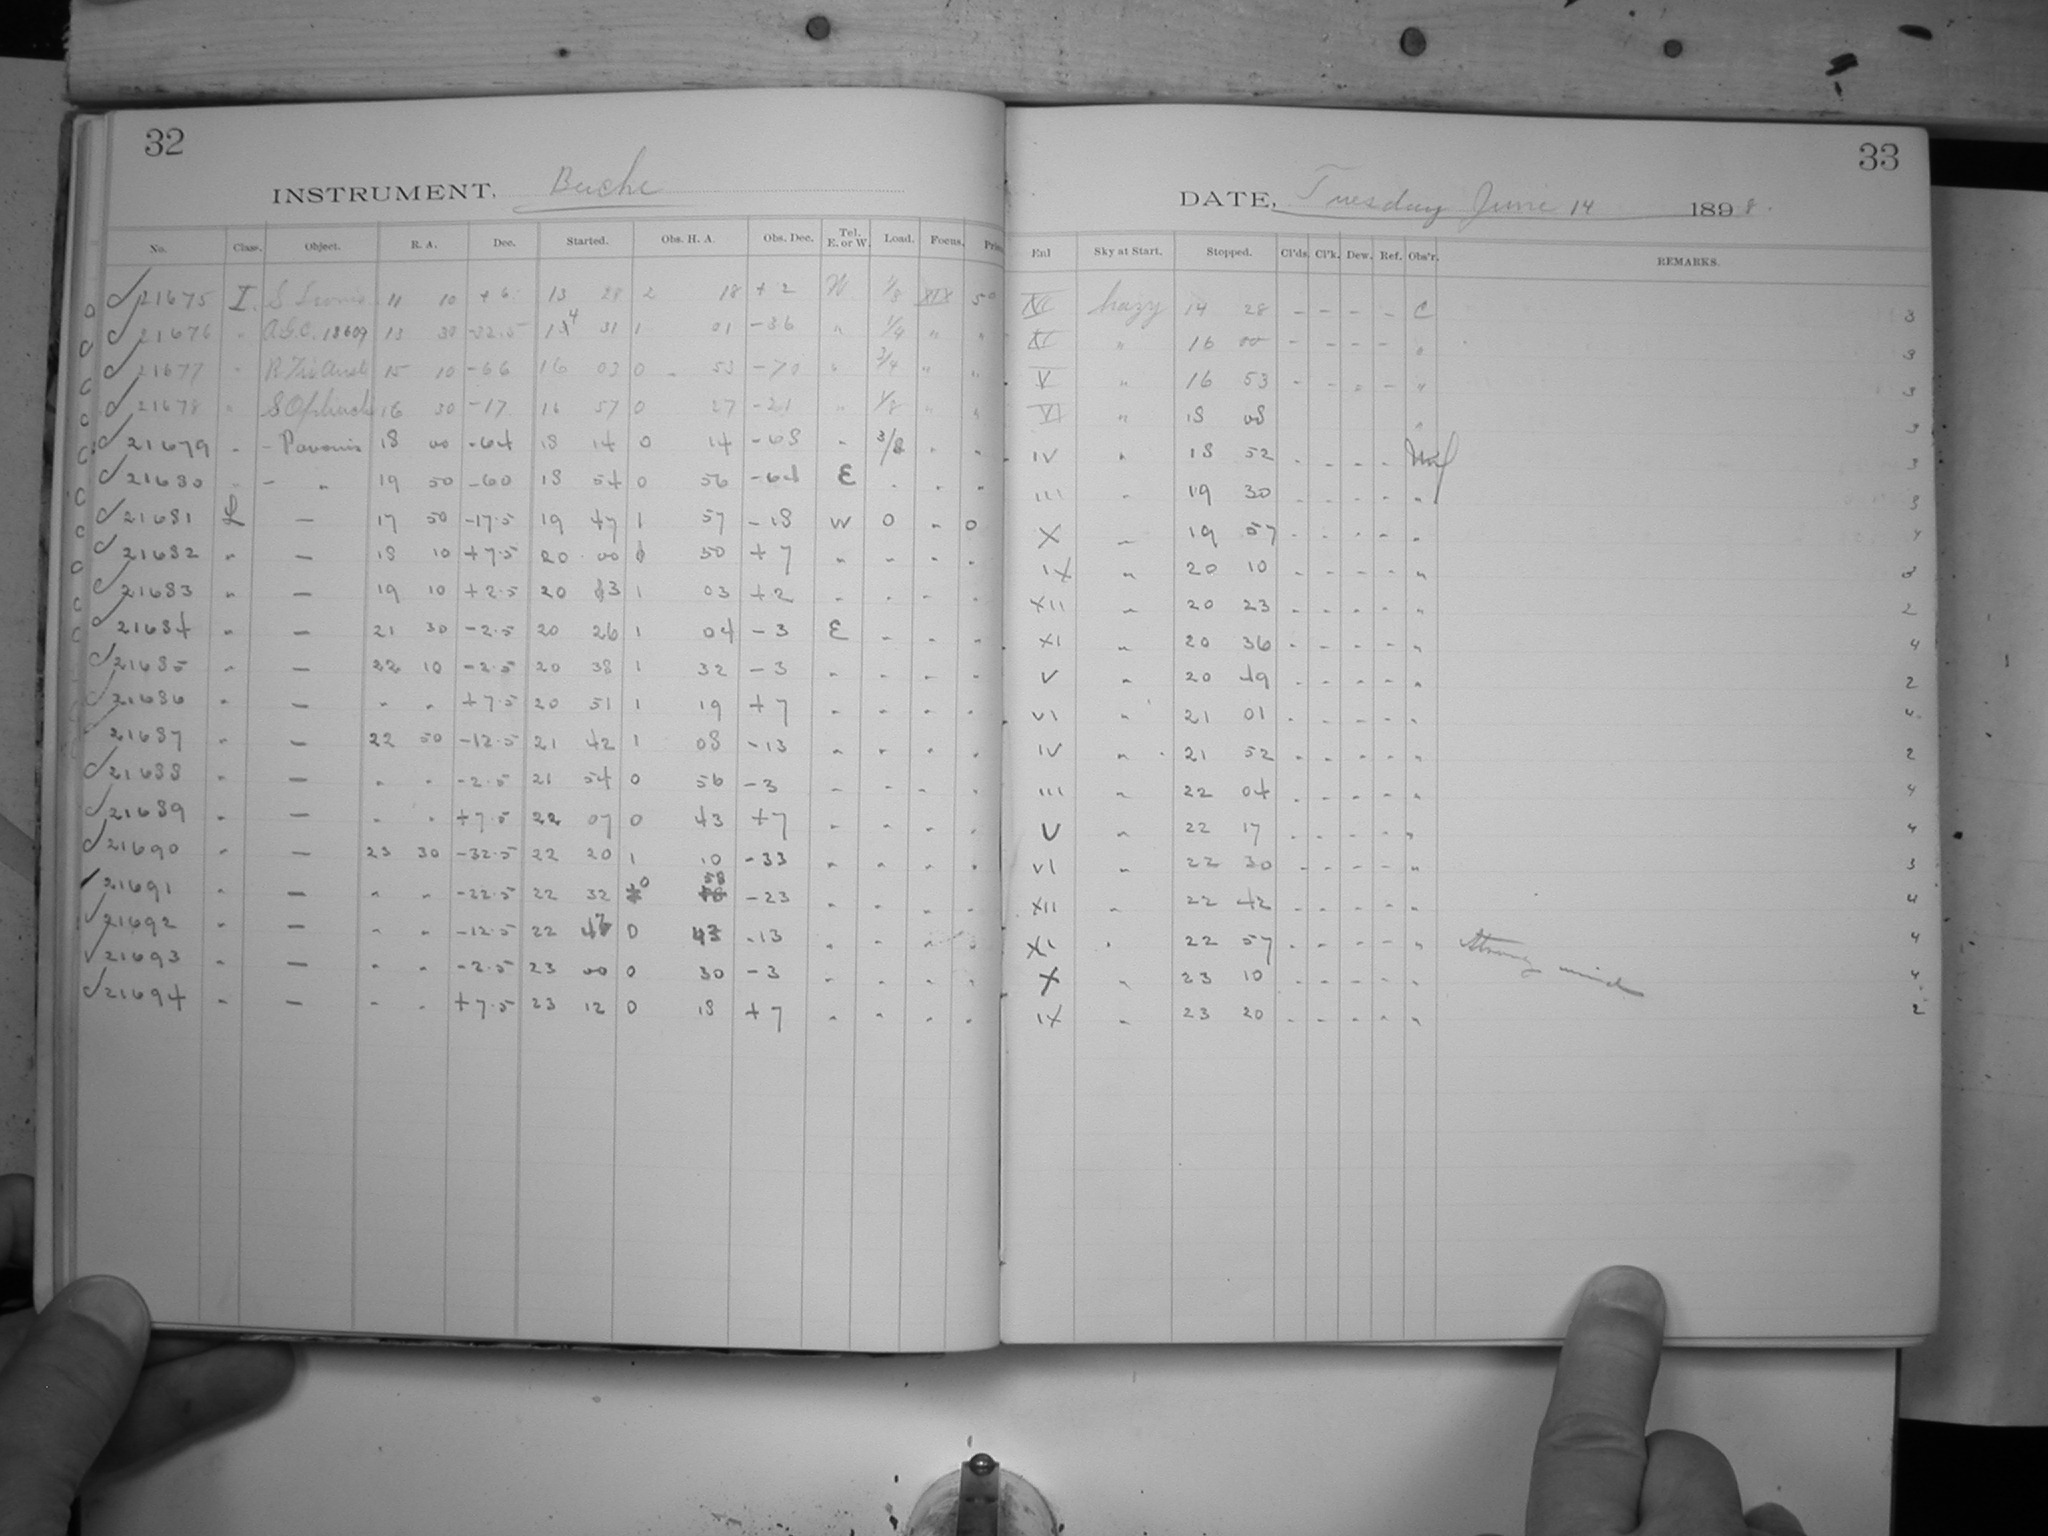 32
INSTRUMENT, Bache
No. Class. Object. R. A. Dec. Started. Obs. H. A. Obs. Dec. Tel. E. or W. Load. Focus.
21675 I. S 11 10 + 6 13 28 2 18 + 2 W 1/8 XIX 50
21676 " A.G.C. 18609 13 30 -32.5 14 31 1 01 -36 " 1/4 " "
21677 " R Tri Aust 15 10 -66 16 03 0 53 -70 " 3/4 " "
21678 " S Ophiuch 16 30 -17 16 57 0 27 -21 " 1/8 " "
21679 " - Pavonis 18 00 -64 18 14 0 14 -68 " 3/8 " "
21680 " - " 19 50 -60 18 54 0 56 -64 E " " "
21681 L — 17 50 -17.5 19 47 1 57 -18 W 0 " 0
21682 " — 18 10 +7.5 20 00 50 +7 " " " "
21683 " — 19 10 +2.5 20 13 1 03 +2 " " " "
21684 " — 21 30 -2.5 20 26 1 04 -3 E " " "
21685 " — 22 10 -2.5 20 38 1 32 -3 " " " "
21686 " — " " +7.5 20 51 1 19 +7 " " " "
21687 " — 22 50 -12.5 21 42 1 08 -13 " " " "
21688 " — " " -2.5 21 54 0 56 -3 " " " "
21689 " — " " +7.5 22 07 0 43 +7 " " " "
21690 " — 23 30 -32.5 22 20 1 10 -33 " " " "
21691 " — " " -22.5 22 32 0 58 -23 " " " "
21692 " — " " -12.5 22 47 0 43 -13 " " " "
21693 " — " " -2.5 23 00 0 30 -3 " " " "
21694 " — " " +7.5 23 12 0 18 +7 " " " "
33
DATE, Tuesday June 14 1898.
Enl Sky at Start. Stopped. Cl'ds. Cl'k. Dew. Ref. Obs'r. REMARKS.
hazy 14 28 - - - - C 3
XI " 16 00 - - - - " 3
V " 16 53 - - - - " 3
VI " 18 08 " 3
IV " 18 52 - - - - 3
III " 19 30 - - - - " 3
X " 19 57 - - - - " 4
IX " 20 10 - - - - " 3
XII " 20 23 - - - - " 2
XI " 20 36 - - - - " 4
V " 20 49 - - - - " 2
VI " 21 01 - - - - " 4
IV " 21 52 - - - - " 2
III " 22 04 - - - - " 4
V " 22 17 - - - - " 4
VI " 22 30 - - - - " 3
XII " 22 42 - - - - " 4
XI " 22 57 - - - - " Strong wind 4
X " 23 10 - - - - " 4
IX " 23 20 - - - - " 2